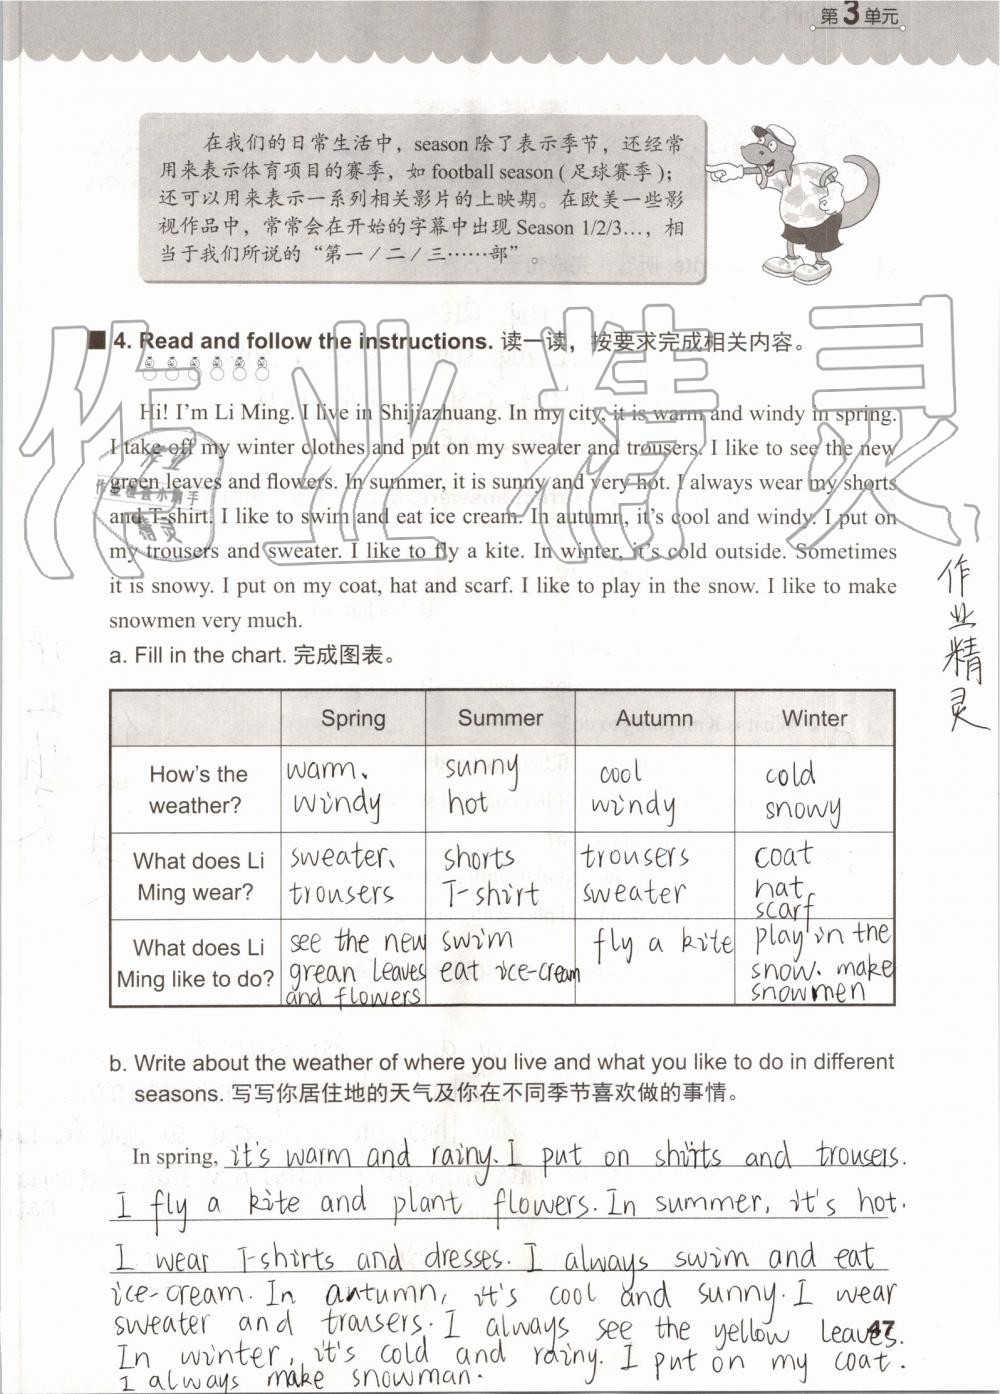 第3单元
在我们的日常生活中，season 除了表示季节，还经常
用来表示体育项目的赛季，如 football season ( 足球赛季 );
还可以用来表示一系列相关影片的上映期。在欧美一些影
视作品中，常常会在开始的字幕中出现 Season 1/2/3…，相
当于我们所说的“第一/二/三……部”。
4. Read and follow the instructions. 读一读，按要求完成相关内容。
Hi! I'm Li Ming. I live in Shijiazhuang. In my city, it is warm and windy in spring.
I take off my winter clothes and put on my sweater and trousers. I like to see the new
green leaves and flowers. In summer, it is sunny and very hot. I always wear my shorts
and T-shirt. I like to swim and eat ice cream. In autumn, it's cool and windy. I put on
my trousers and sweater. I like to fly a kite. In winter, it's cold outside. Sometimes
it is snowy. I put on my coat, hat and scarf. I like to play in the snow. I like to make
snowmen very much.
作业精灵
作业精灵
a. Fill in the chart. 完成图表。
Spring Summer Autumn Winter
How's the weather?
warm、 windy
sunny hot
cool windy
cold snowy
What does Li Ming wear?
sweater、 trousers
shorts T-shirt
trousers sweater
coat hat scarf
What does Li Ming like to do?
see the new grean leaves and flowers
swim eat ice-cream
fly a kite
play in the snow. make snowmen
b. Write about the weather of where you live and what you like to do in different
seasons. 写写你居住地的天气及你在不同季节喜欢做的事情。
In spring, it's warm and rainy. I put on shirts and trousers.
I fly a kite and plant flowers. In summer, it's hot.
I wear T-shirts and dresses. I always swim and eat
ice-cream. In autumn, it's cool and sunny. I wear
sweater and trousers. I always see the yellow leaves.
47
In winter, it's cold and rainy. I put on my coat.
I always make snowman.